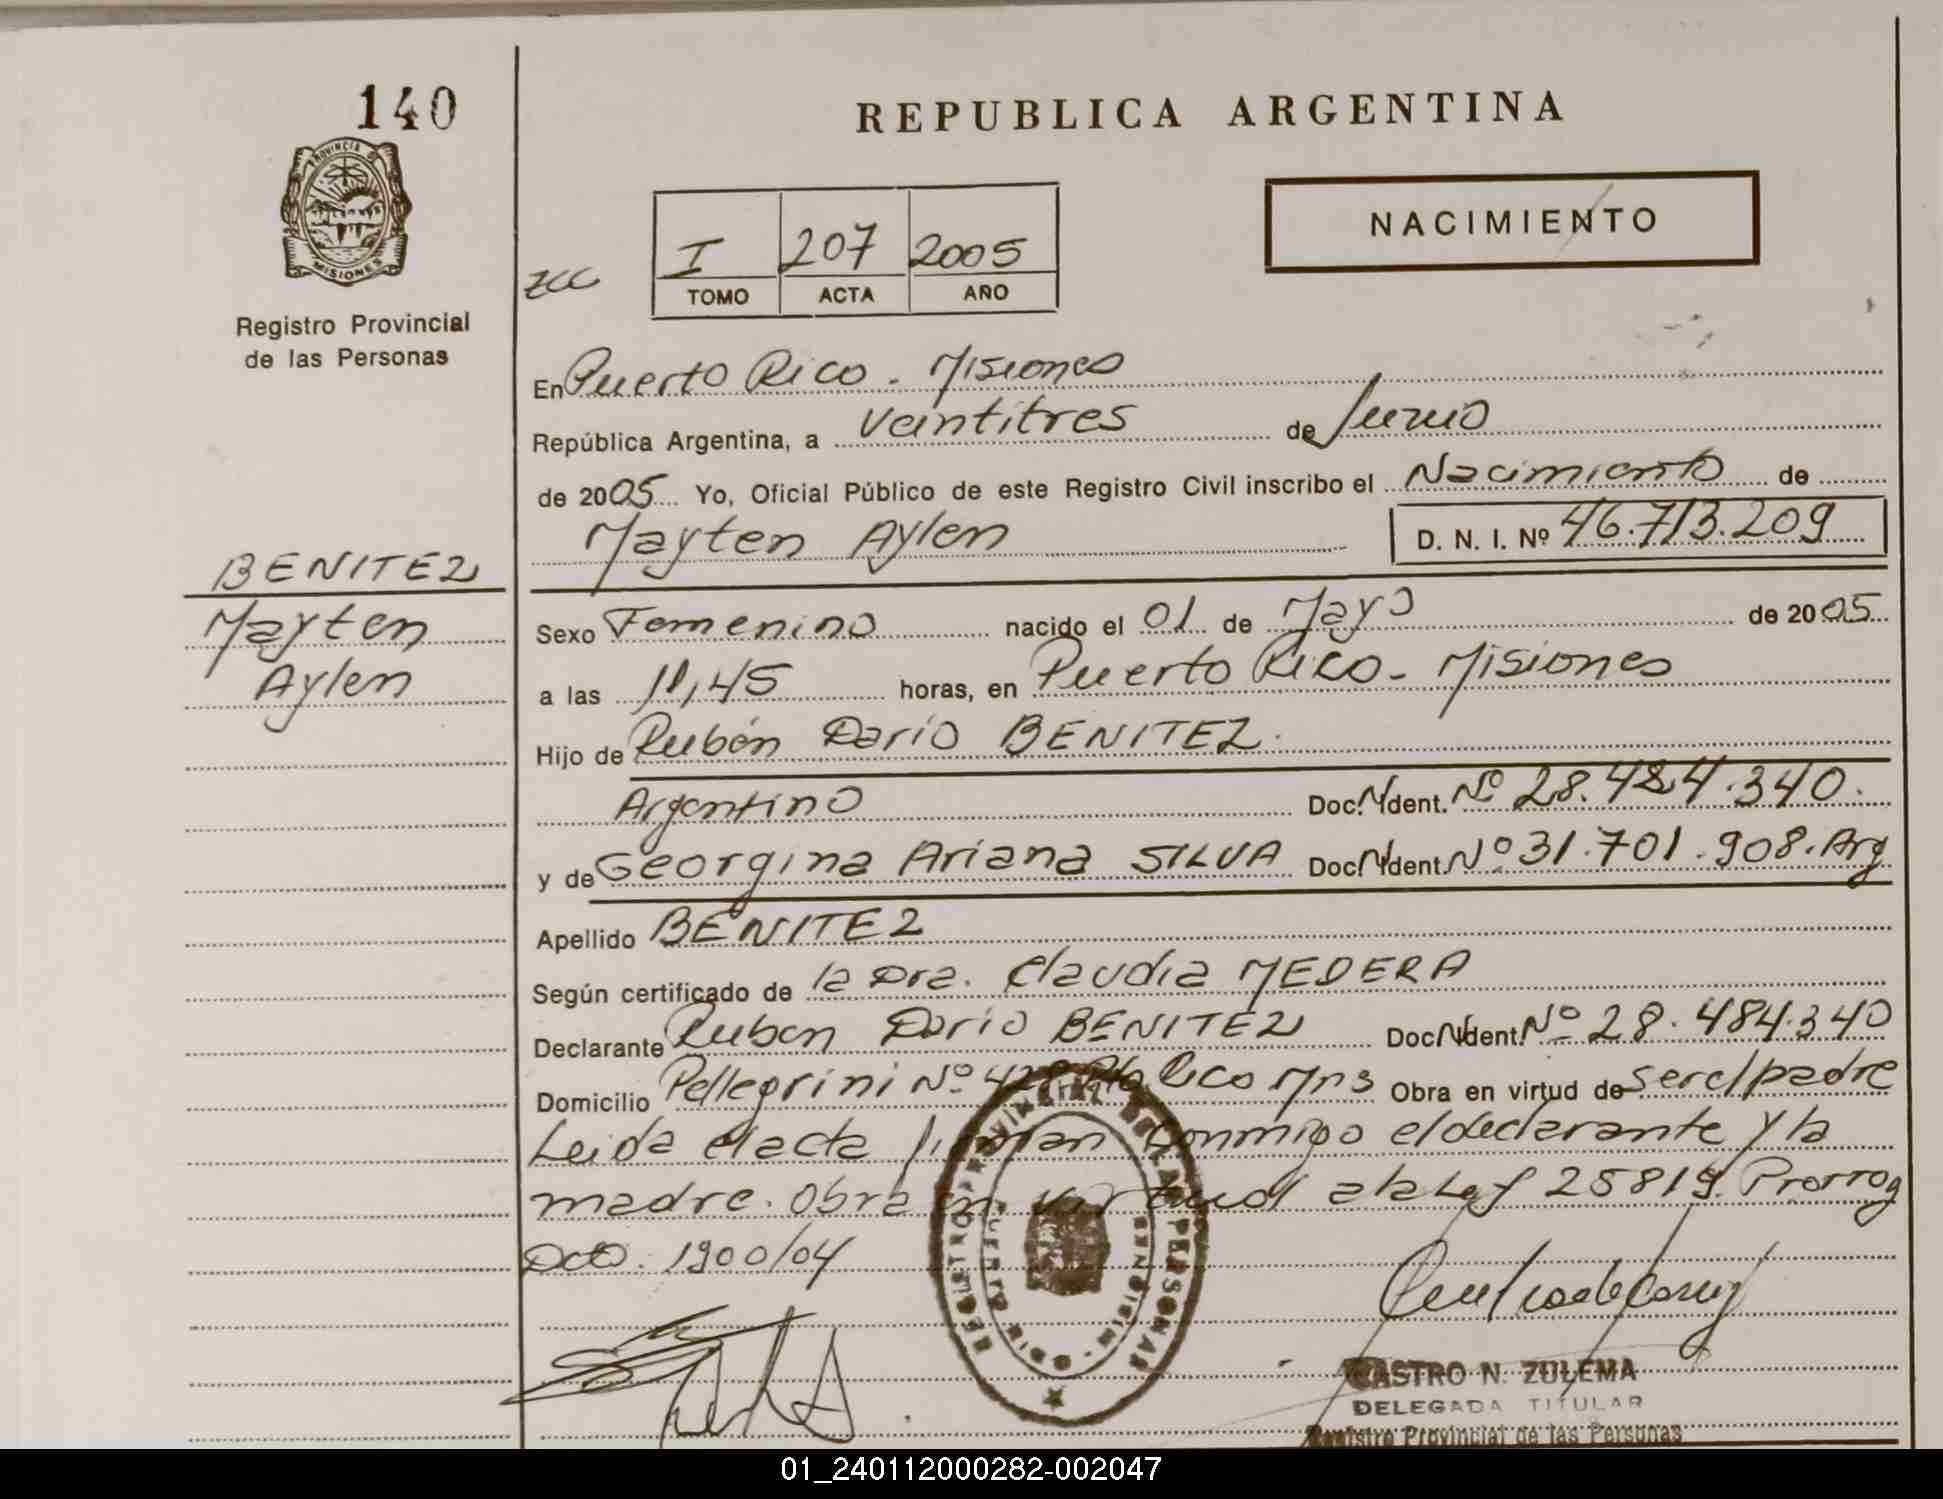 140
REPUBLICA ARGENTINA
PROVINCIA DE
MISIONES
Registro Provincial
de las Personas
NACIMIENTO
I 207 2005
TOMO ACTA AÑO
En Puerto Rico - Misiones
República Argentina, a veintitres de Junio
de 2005 Yo, Oficial Público de este Registro Civil inscribo el Nacimiento de
Mayten Aylen D. N. I. Nº 46.713.209
BENITEZ
Mayten
Aylen
Sexo Femenino nacido el 01 de Mayo de 2005
a las 11,45 horas, en Puerto Rico - Misiones
Hijo de Rubén Darío BENITEZ.
Argentino Doc. Ident. Nº 28.484.340.
y de Georgina Ariana SILVA Doc. Ident. Nº 31.701.908. Arg
Apellido BENITEZ
Según certificado de la Dra. Claudia MEDERA
Declarante Ruben Dario BENITEZ Doc. Ident. Nº 28.484.340
Domicilio Pellegrini Nº 428 Pto Rico Mns Obra en virtud de ser el padre
Leida el acta firman conmigo el declarante y la
madre. Obra en virtud a la Ley 25819. Prorrog
Dcto. 1900/04
REGISTRO PROVINCIAL DE LAS PERSONAS
PUERTO RICO - MISIONES
CASTRO N. ZULEMA
DELEGADA TITULAR
Registro Provincial de las Personas
01_240112000282-002047